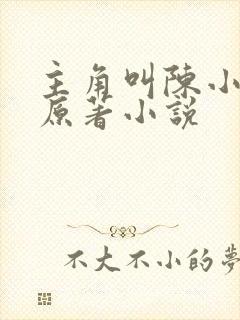 主角叫陳小
原著小説
不大不小的夢